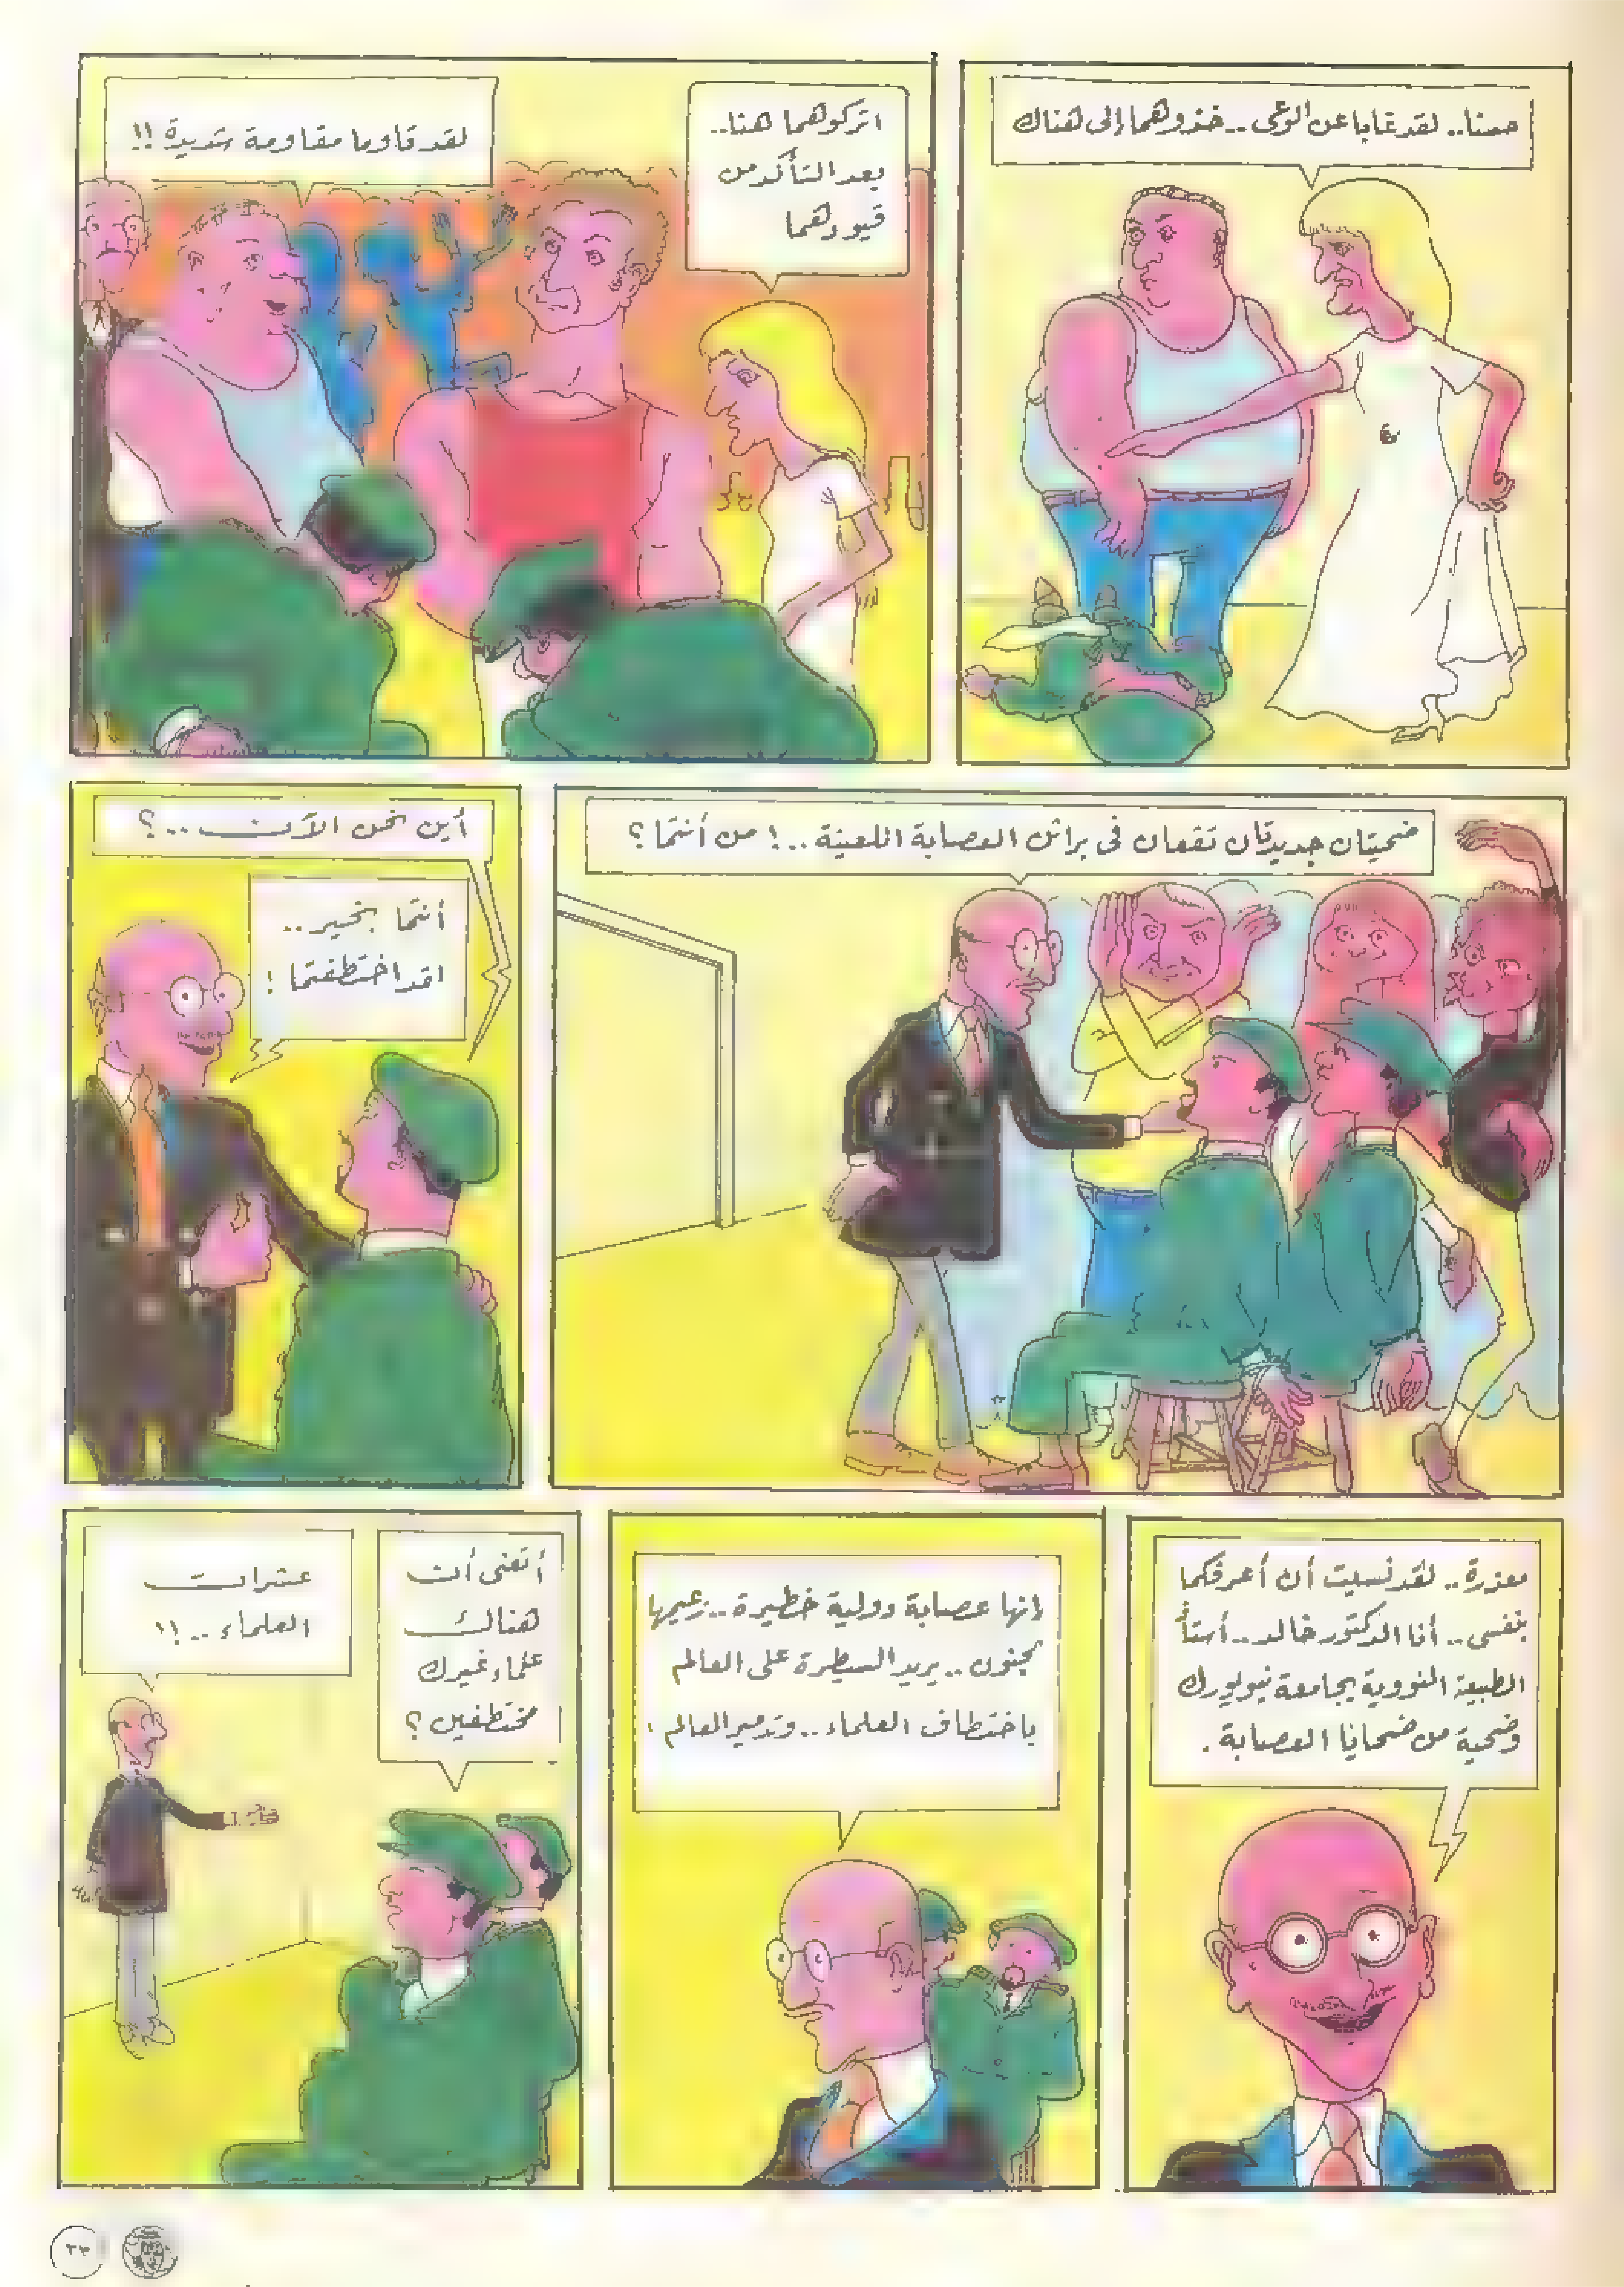 حسنا.. لقد غابا عن الوعى.. خذوهما إلى هناك
اتركوهما هنا..
بعد التأكد من
قيودهما
لقد قاوما مقاومة شديدة !!
ضحيتان جديدتان تقعان فى براثن العصابة اللعينة..! من أنتما ؟
أين نحن الآن ..؟
أنتما بخير..
لقد اختطفتما !
معذرة.. لقد نسيت أن أعرفكما
بنفسى.. أنا الدكتور خالد.. أستاذ
الطبيعة النووية بجامعة نيويورك
وضحية من ضحايا العصابة .
إنها عصابة دولية خطيرة.. زعيمها
مجنون.. يريد السيطرة على العالم
باختطاف العلماء.. وتدمير العالم !
أتعنى أن
هنالك
علماء غيرك
مختطفين ؟
عشرات
العلماء..!!
٣٣